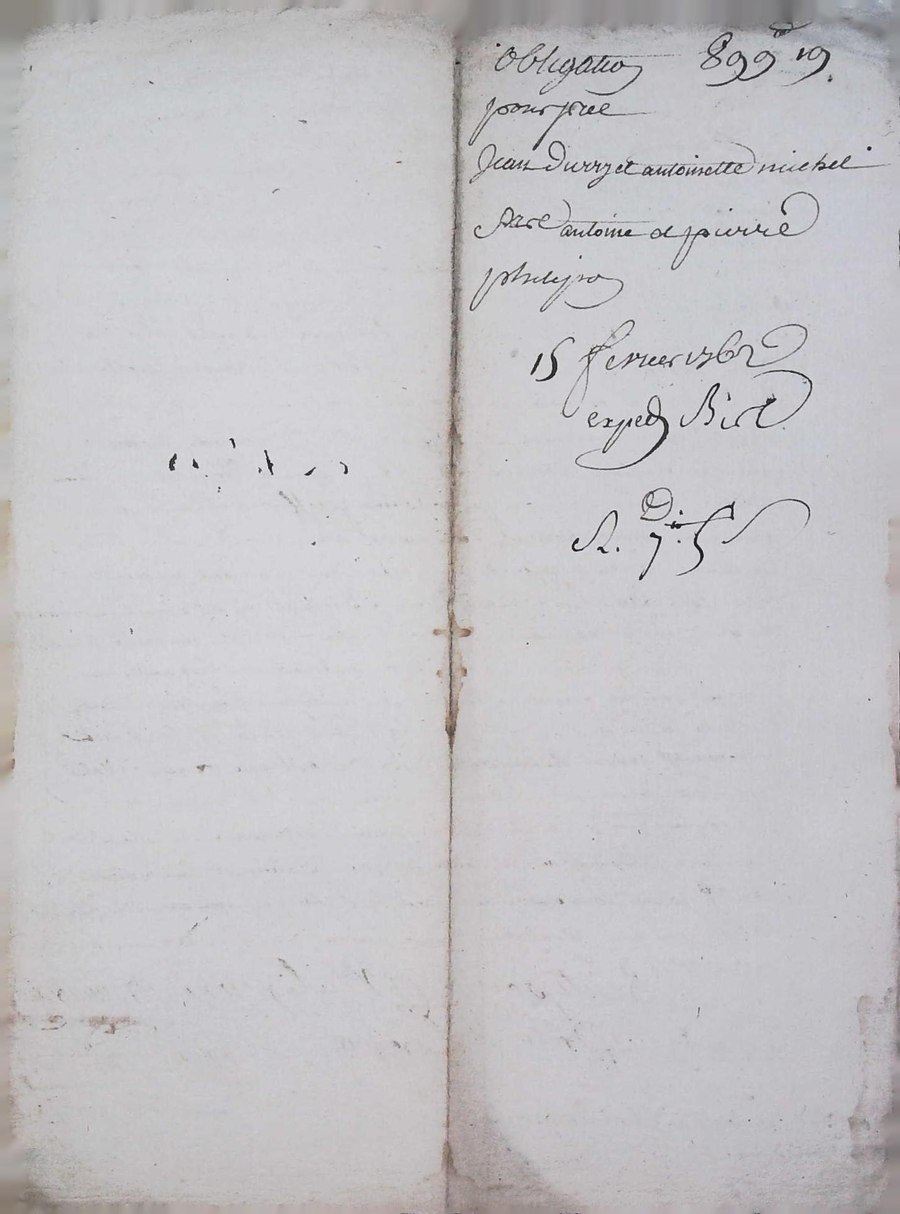 obligation 899 19
pour
jean durry et antoinette michel
antoine et pierre
philipon
15 fevrier 1762
exped
R. 7